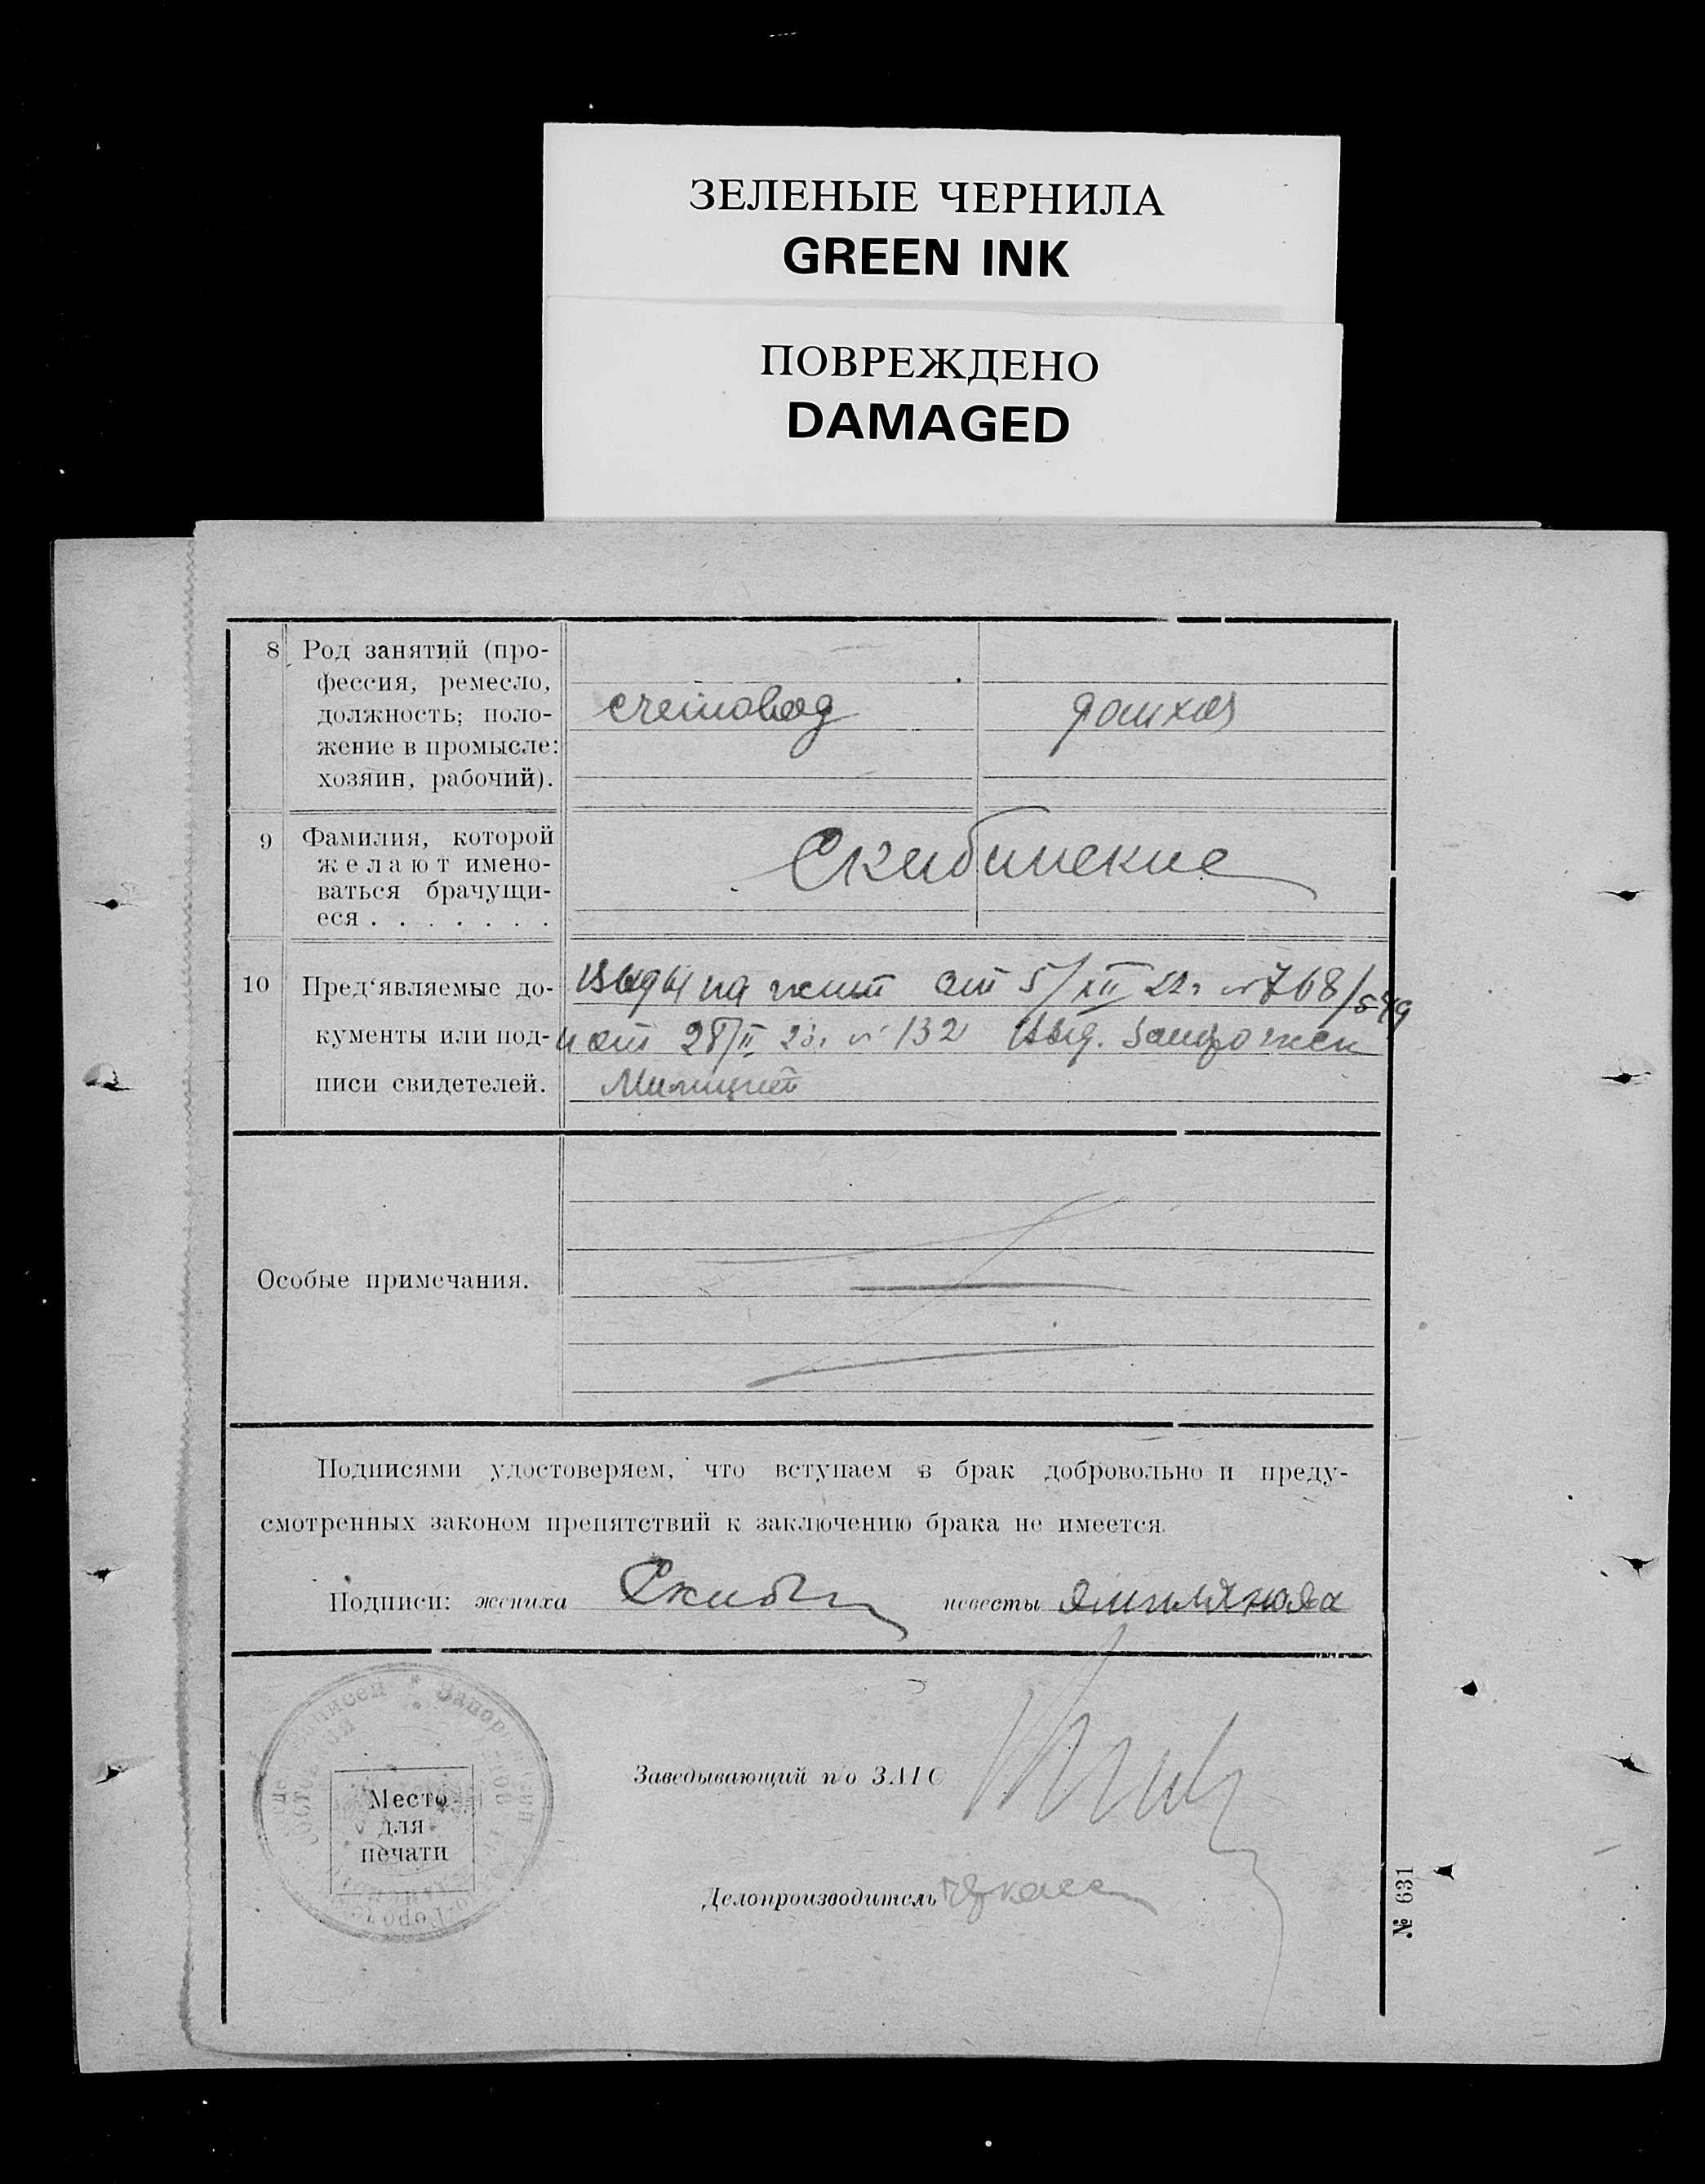 ЗЕЛЕНЫЕ ЧЕРНИЛА
GREEN INK
ПОВРЕЖДЕНО
DAMAGED
8 Род занятий (про-
фессия, ремесло,
должность; поло-
жение в промысле:
хозяин, рабочий).
счетовод
домхоз
9 Фамилия, которой
желают имено-
ваться брачущи-
еся . . . . . . .
Скибинские
10 Пред‘являемые до-
кументы или под-
писи свидетелей.
Виды на жит от 5/XII 22г №768/
и от 28/II 23г № 132 выд. Запорожск
Милицией
Особые примечания.
Подписями удостоверяем, что вступаем в брак добровольно и преду-
смотренных законом препятствий к заключению брака не имеется.
Подписи: жениха невесты
Заведывающий п/о ЗАГС
Делопроизводитель
Место
для
печати
№ 631